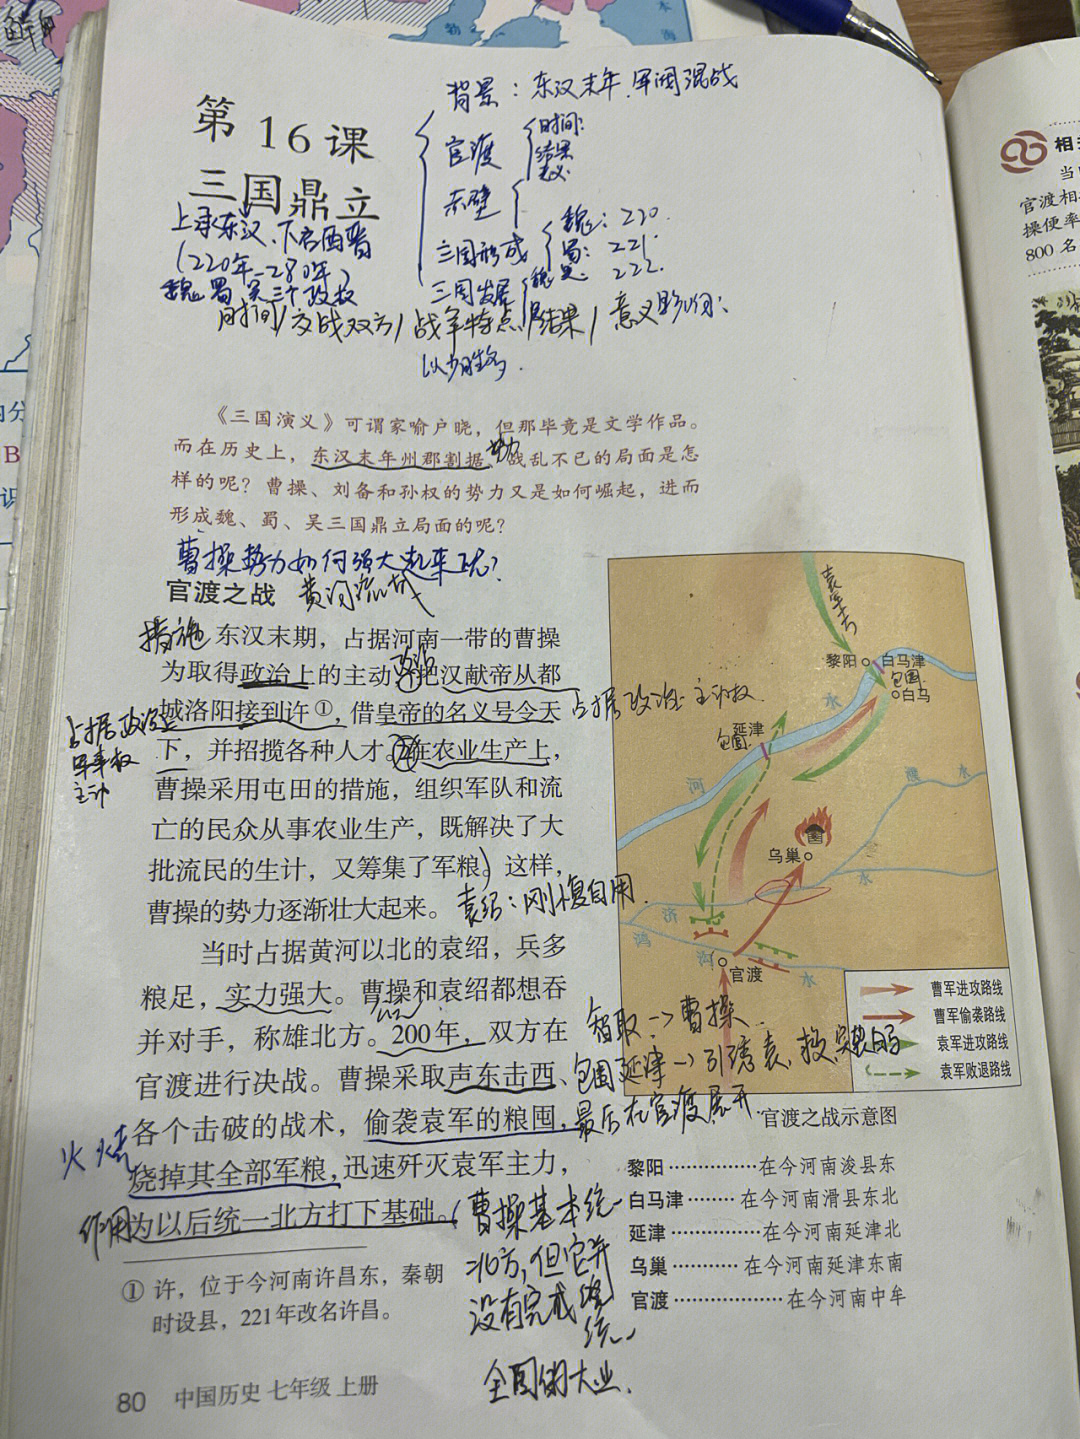 背景：东汉末年、军阀混战
第 16 课
官渡
时间：
结果
意义
三国鼎立
赤壁
上承东汉、下启西晋
三国形成
魏：220.
蜀：221.
吴：222.
(220年-280年)
魏 蜀 吴三个政权
三国发展
魏
时间/交战双方/战争特点/结果/意义影响：
以少胜多.
《三国演义》可谓家喻户晓，但那毕竟是文学作品。
而在历史上，东汉末年州郡割据、战乱不已的局面是怎
势力
样的呢？曹操、刘备和孙权的势力又是如何崛起，进而
形成魏、蜀、吴三国鼎立局面的呢？
曹操势力如何强大起来的？
官渡之战 黄河流域
措施
东汉末期，占据河南一带的曹操
为取得政治上的主动，把汉献帝从都
政治
城洛阳接到许①，借皇帝的名义号令天
占据政治：主动权
占据政治上
军事权
主动
下，并招揽各种人才。②在农业生产上，
曹操采用屯田的措施，组织军队和流
亡的民众从事农业生产，既解决了大
批流民的生计，又筹集了军粮。这样，
曹操的势力逐渐壮大起来。
袁绍：刚愎自用
当时占据黄河以北的袁绍，兵多
粮足，实力强大。曹操和袁绍都想吞
并对手，称雄北方。200年，双方在
官渡进行决战。曹操采取声东击西、
各个击破的战术，偷袭袁军的粮囤，
烧掉其全部军粮，迅速歼灭袁军主力，
为以后统一北方打下基础。
火烧
作用
智取 → 曹操
包围延津 → 引诱袁、
最后在官渡展开
(曹操基本统一
北方，但它并
没有完成
统一
全国的大业.
① 许，位于今河南许昌东，秦朝
时设县，221年改名许昌。
80 中国历史 七年级 上册
黎阳
白马津
包围
白马
延津
包围
水
河
濮 水
乌巢
水
济
鸿
沟
官渡
水
曹军进攻路线
曹军偷袭路线
袁军进攻路线
袁军败退路线
官渡之战示意图
黎阳 …………… 在今河南浚县东
白马津 ……… 在今河南滑县东北
延津 …………… 在今河南延津北
乌巢 ………… 在今河南延津东南
官渡 ……………… 在今河南中牟
相
当
官渡相
操便率
800 名